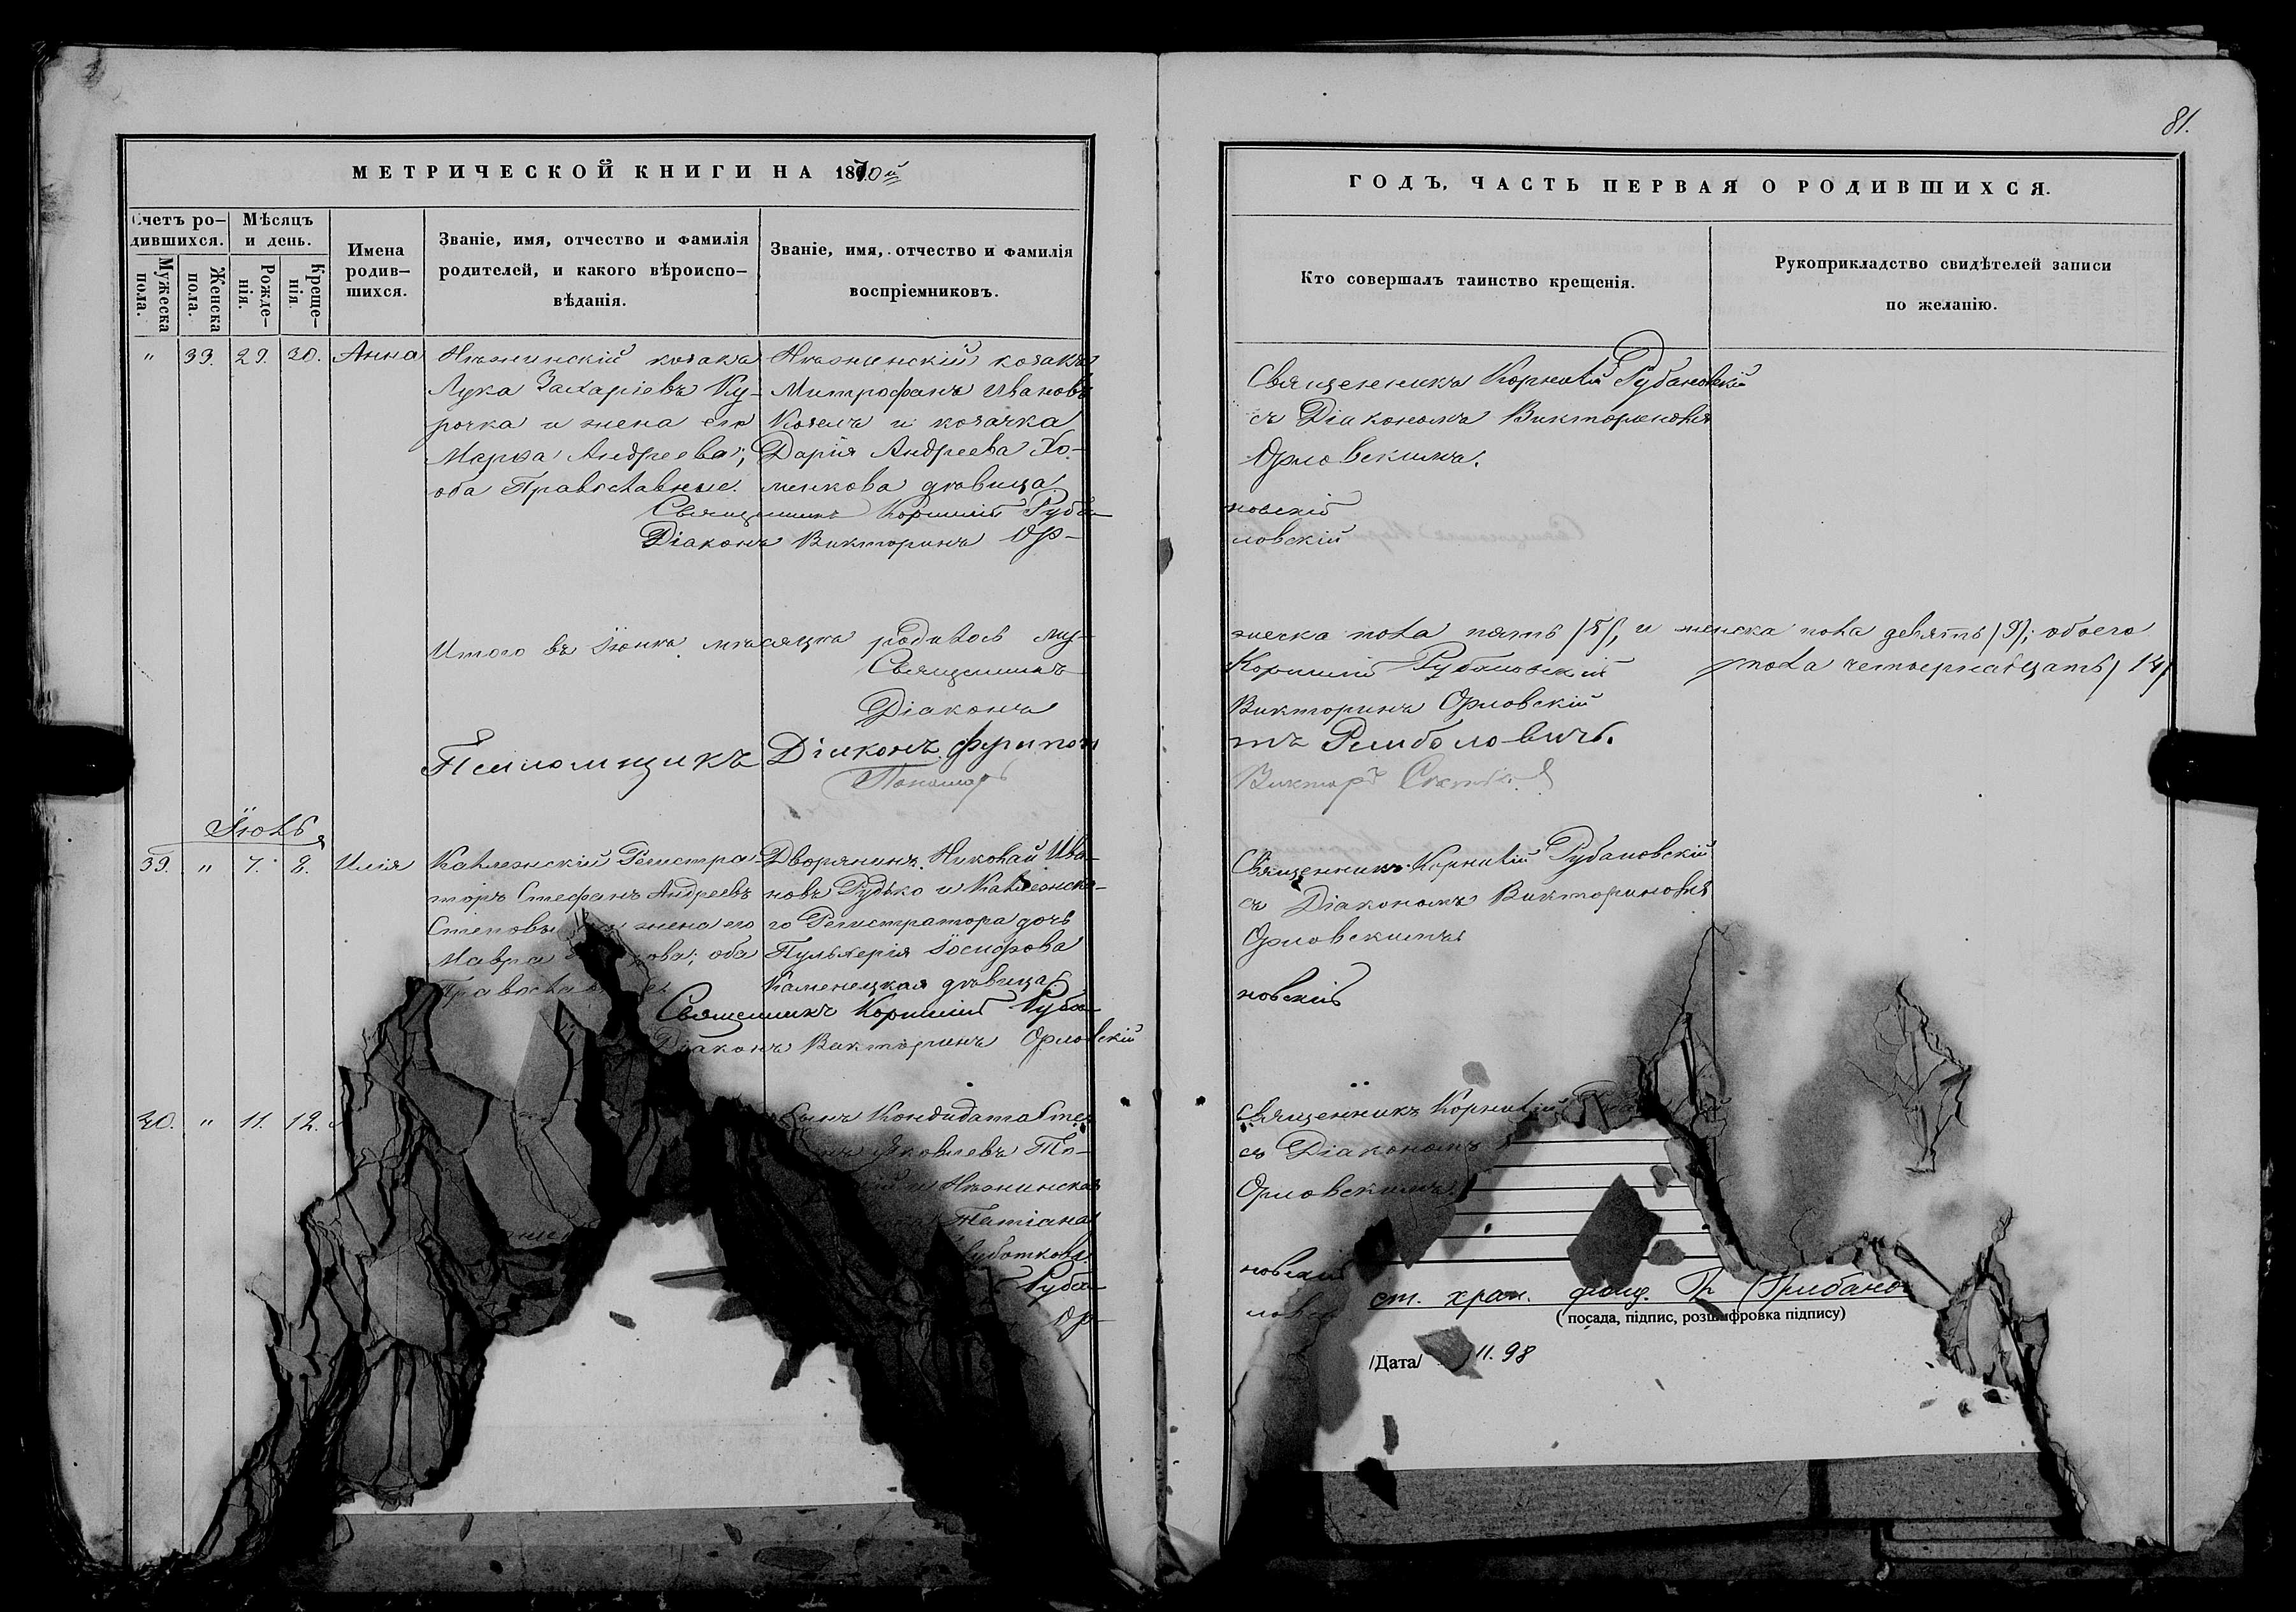 81.
МЕТРИЧЕСКОЙ КНИГИ НА 1870й
ГОДЪ, ЧАСТЬ ПЕРВАЯ О РОДИВШИХСЯ.
Счетъ родившихся.
Мужеска пола.
Женска пола.
Мѣсяцъ и день.
Рожденія.
Крещенія.
Имена родившихся.
Званіе, имя, отчество и фамилія
родителей, и какого вѣроиспо-
вѣданія.
Званіе, имя, отчество и фамилія
воспріемниковъ.
Кто совершалъ таинство крещенія.
Рукоприкладство свидѣтелей записи
по желанію.
" 39. 29. 30. Анна
Нѣжинскій козакъ
Лука Захаріевъ Ку-
рочка и жена его
Марѳа Андреева;
оба Православные.
Нѣжинскій козакъ
Митрофанъ Ивановъ
Козелъ и козачка
Дарія Андреева Хо-
менкова дѣвица
Священникъ Корнилій Рубановскій
съ Діакономъ Викториномъ
Орловскимъ.
Священникъ Корнилій Руба-
новскій
Діаконъ Викторинъ Ор-
ловскій
Итого въ Іюнѣ мѣсяцѣ родилось му-
жеска пола пять /5/, и женска пола девять /9/; обоего
пола четырнадцать /14/
Священникъ Корнилій Рубановскій
Діаконъ Викторинъ Орловскій
Псаломщикъ Діаконъ
Пономарь Викторъ
Іюль
39. " 7. 8. Илія
Коллежскій Регистра-
торъ Стефанъ Андреевъ
жена его
Мавра оба
Дворянинъ Николай Ива-
новъ Рудько и Коллежска-
го Регистратора дочь
Пульхерія Іосифова
Каменецкая дѣвица.
Священникъ Корнилій Рубановскій
съ Діакономъ Викториномъ
Орловскимъ
Священникъ Корнилій Руба-
новскій
Діаконъ Викторинъ Орловскій
40. " 11. 12.
Сынъ Кондидата
Яковлевъ
и Нѣжинская
Татіана
Руба-
Ор-
Священникъ Корнилій
съ Діакономъ
Орловскимъ.
новскій
ст. хран. фонд.
( посада, підпис, розшифровка підпису)
/Дата/ 11.98